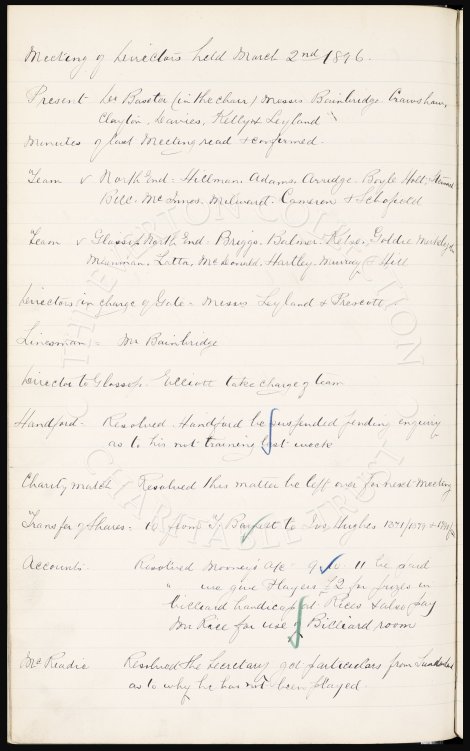 Meeting of Directors held March 2nd 1896.
Present Dr Baxter (in the chair) Messrs Bainbridge Crawshaw,
Clayton, Davies, Kelly & Leyland
Minutes of last Meeting read & confirmed.
Team v North End - Hillman, Adams, Arridge, Boyle Holt, Stewart
Bell. McInnes. Milward. Cameron & Schofield
Team v Glossop North End. Briggs. Balmer. Kelso, Goldie
Meunman. Latta, McDonald, Hartley, Murray & Hill
Directors in charge of Gate - Messrs Leyland & Prescott
Linesman = Mr Bainbridge
Director to Glossop - Elliott take charge of team
Handford - Resolved. Handford be suspended pending enquiry
as to his not training last week
Charity match - Resolved this matter be left over for next Meeting
Transfer of Shares = from Ty Barfett to Jos Hughes 1871/1879 &
Accounts. Resolved a/c 11 be paid
" we give Players £2 for prizes in
billiard handicap at Rices & also pay
Mr Rice for use of Billiard room
McReadie Resolved the Secretary get particulars from Sunderland
as to why he has not been played.
THE EVERTON COLLECTION
CHARITABLE TRUST